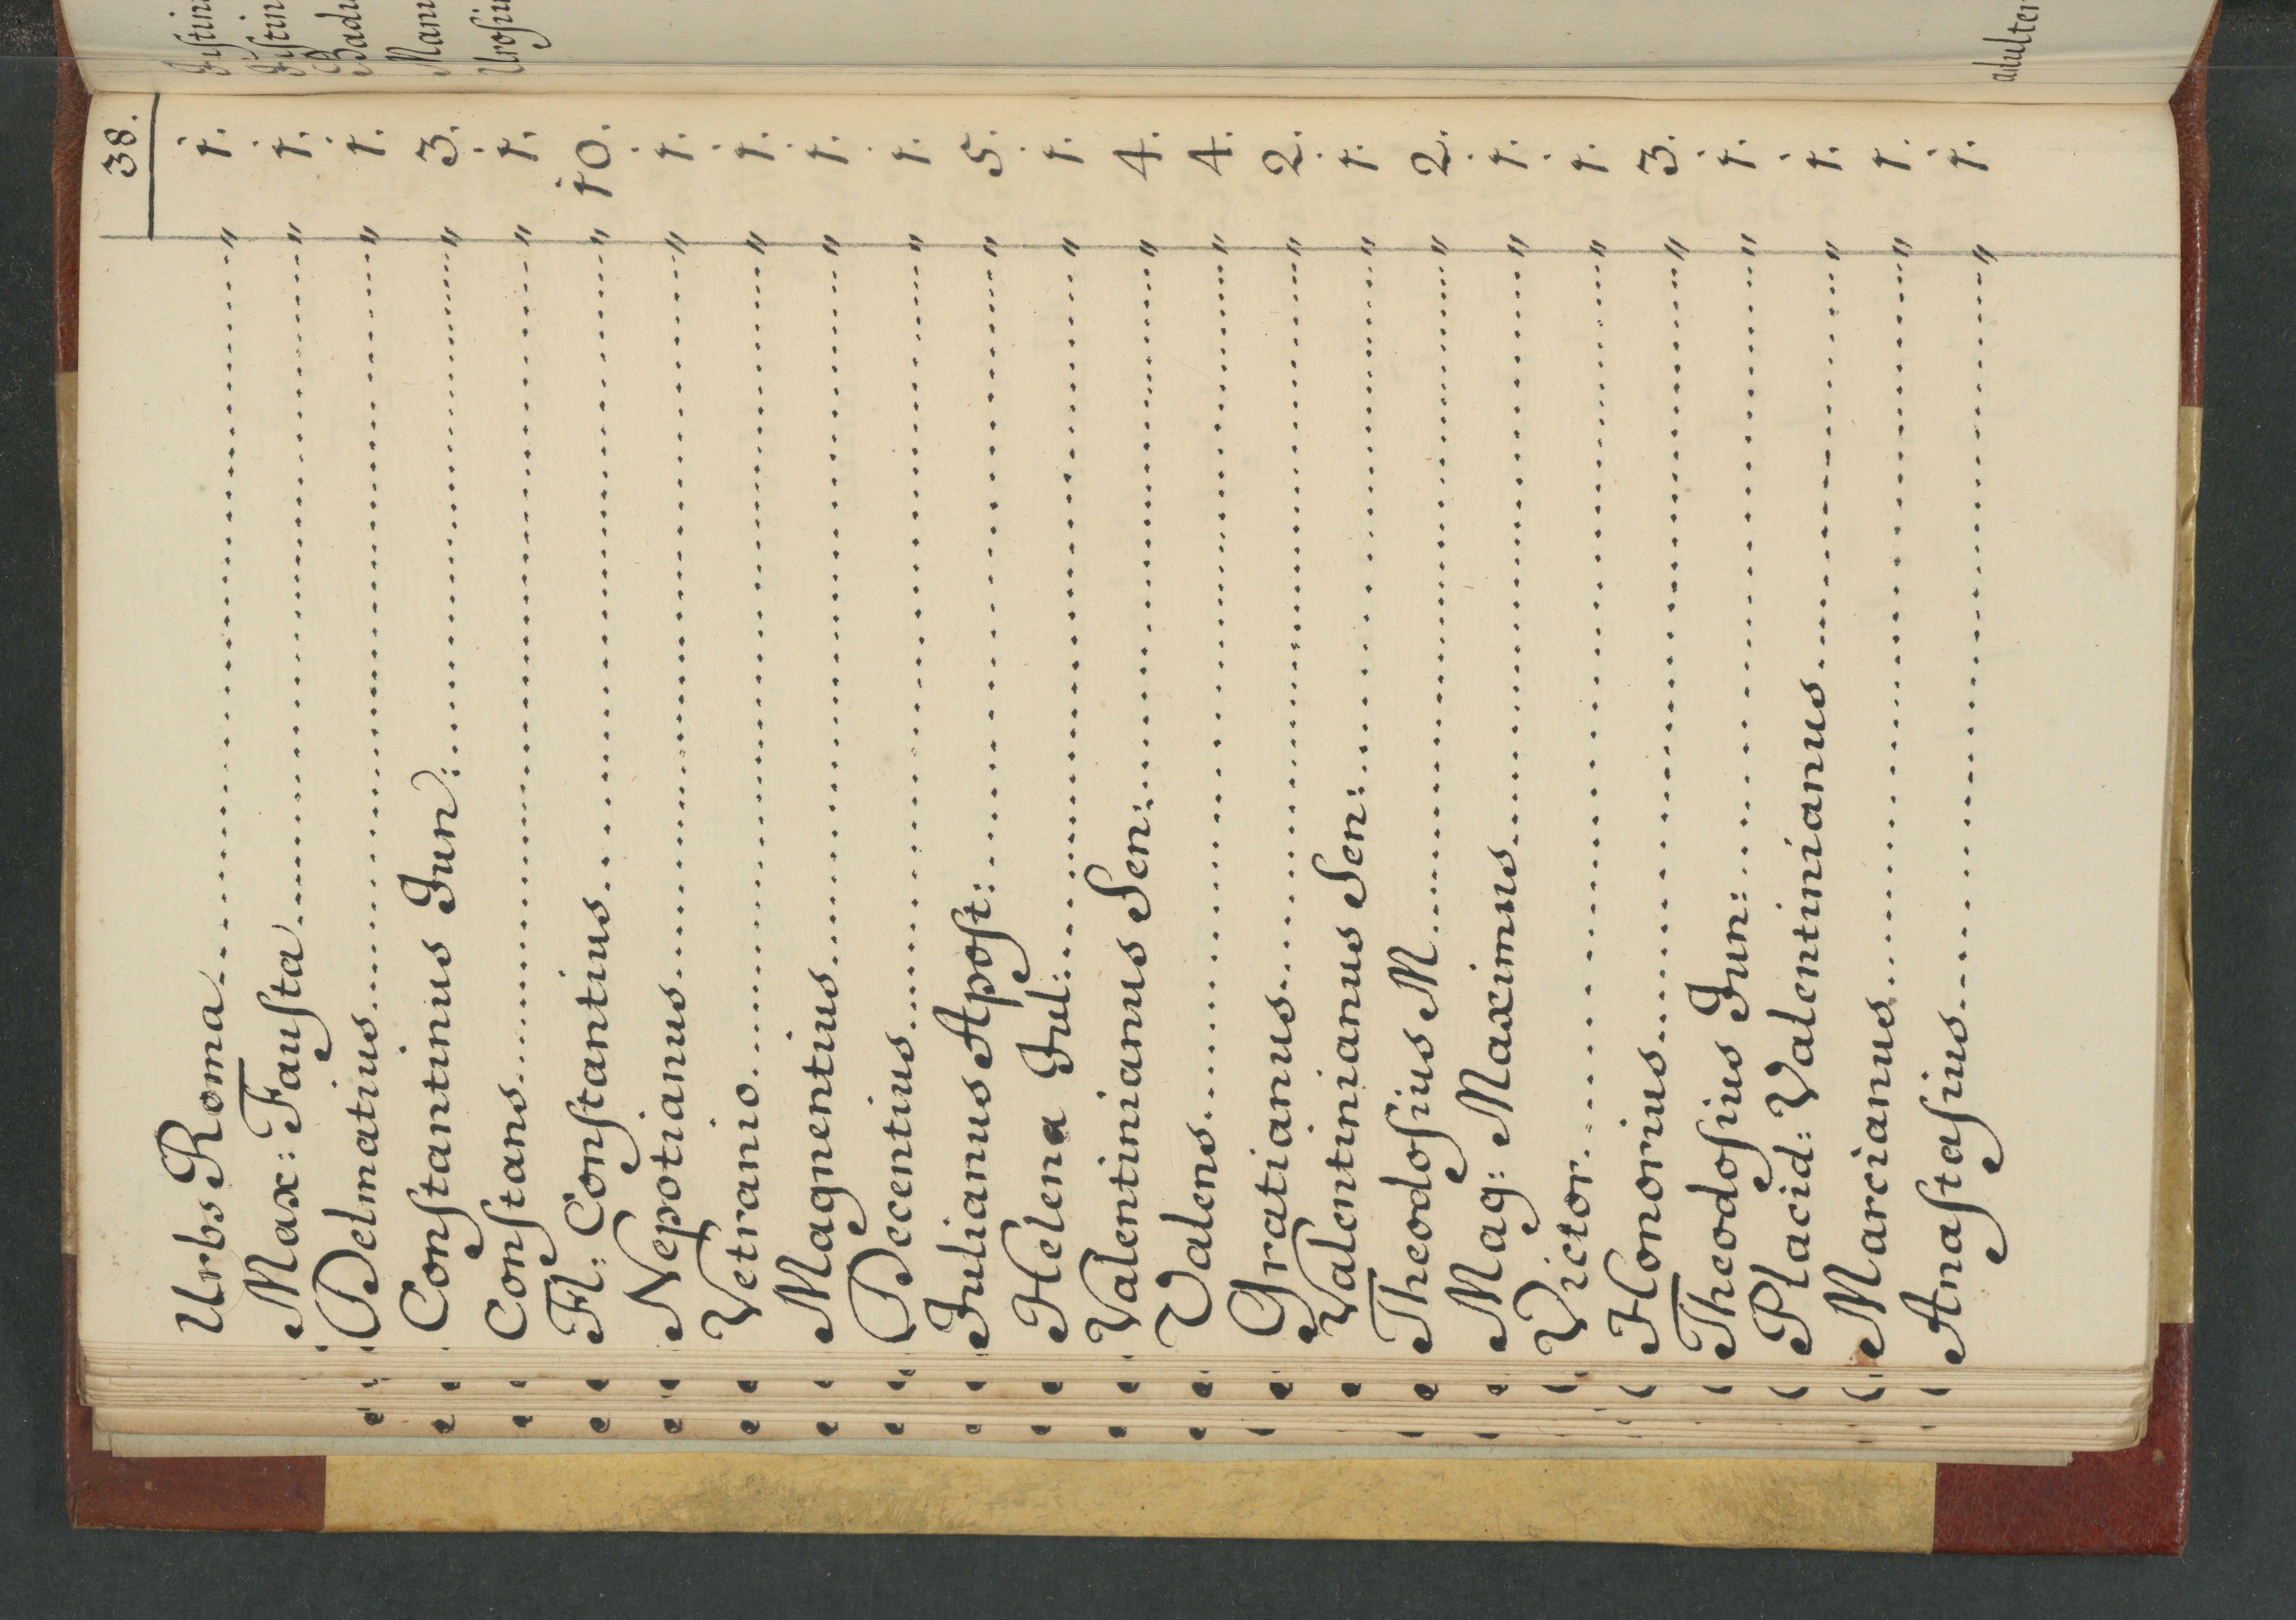 38.
Urbs Roma " 1.
Max: Fausta " 1.
Delmatius " 1.
Constantinus Jun: " 3.
Constans " 1.
Fl: Constantius " 10.
Nepotianus " 1.
Vetranio " 1.
Magnentius " 1.
Decentius " 1.
Julianus Apost: " 5.
Helena Jul: " 1.
Valentinianus Sen: " 4.
Valens " 4.
Gratianus " 2.
Valentinianus Sen: " 1.
Theodosius M " 2.
Mag: Maximus " 1.
Victor " 1.
Honorius " 3.
Theodosius Jun: " 1.
Placid: Valentinianus " 1.
Marcianus " 1.
Anastasius " 1.